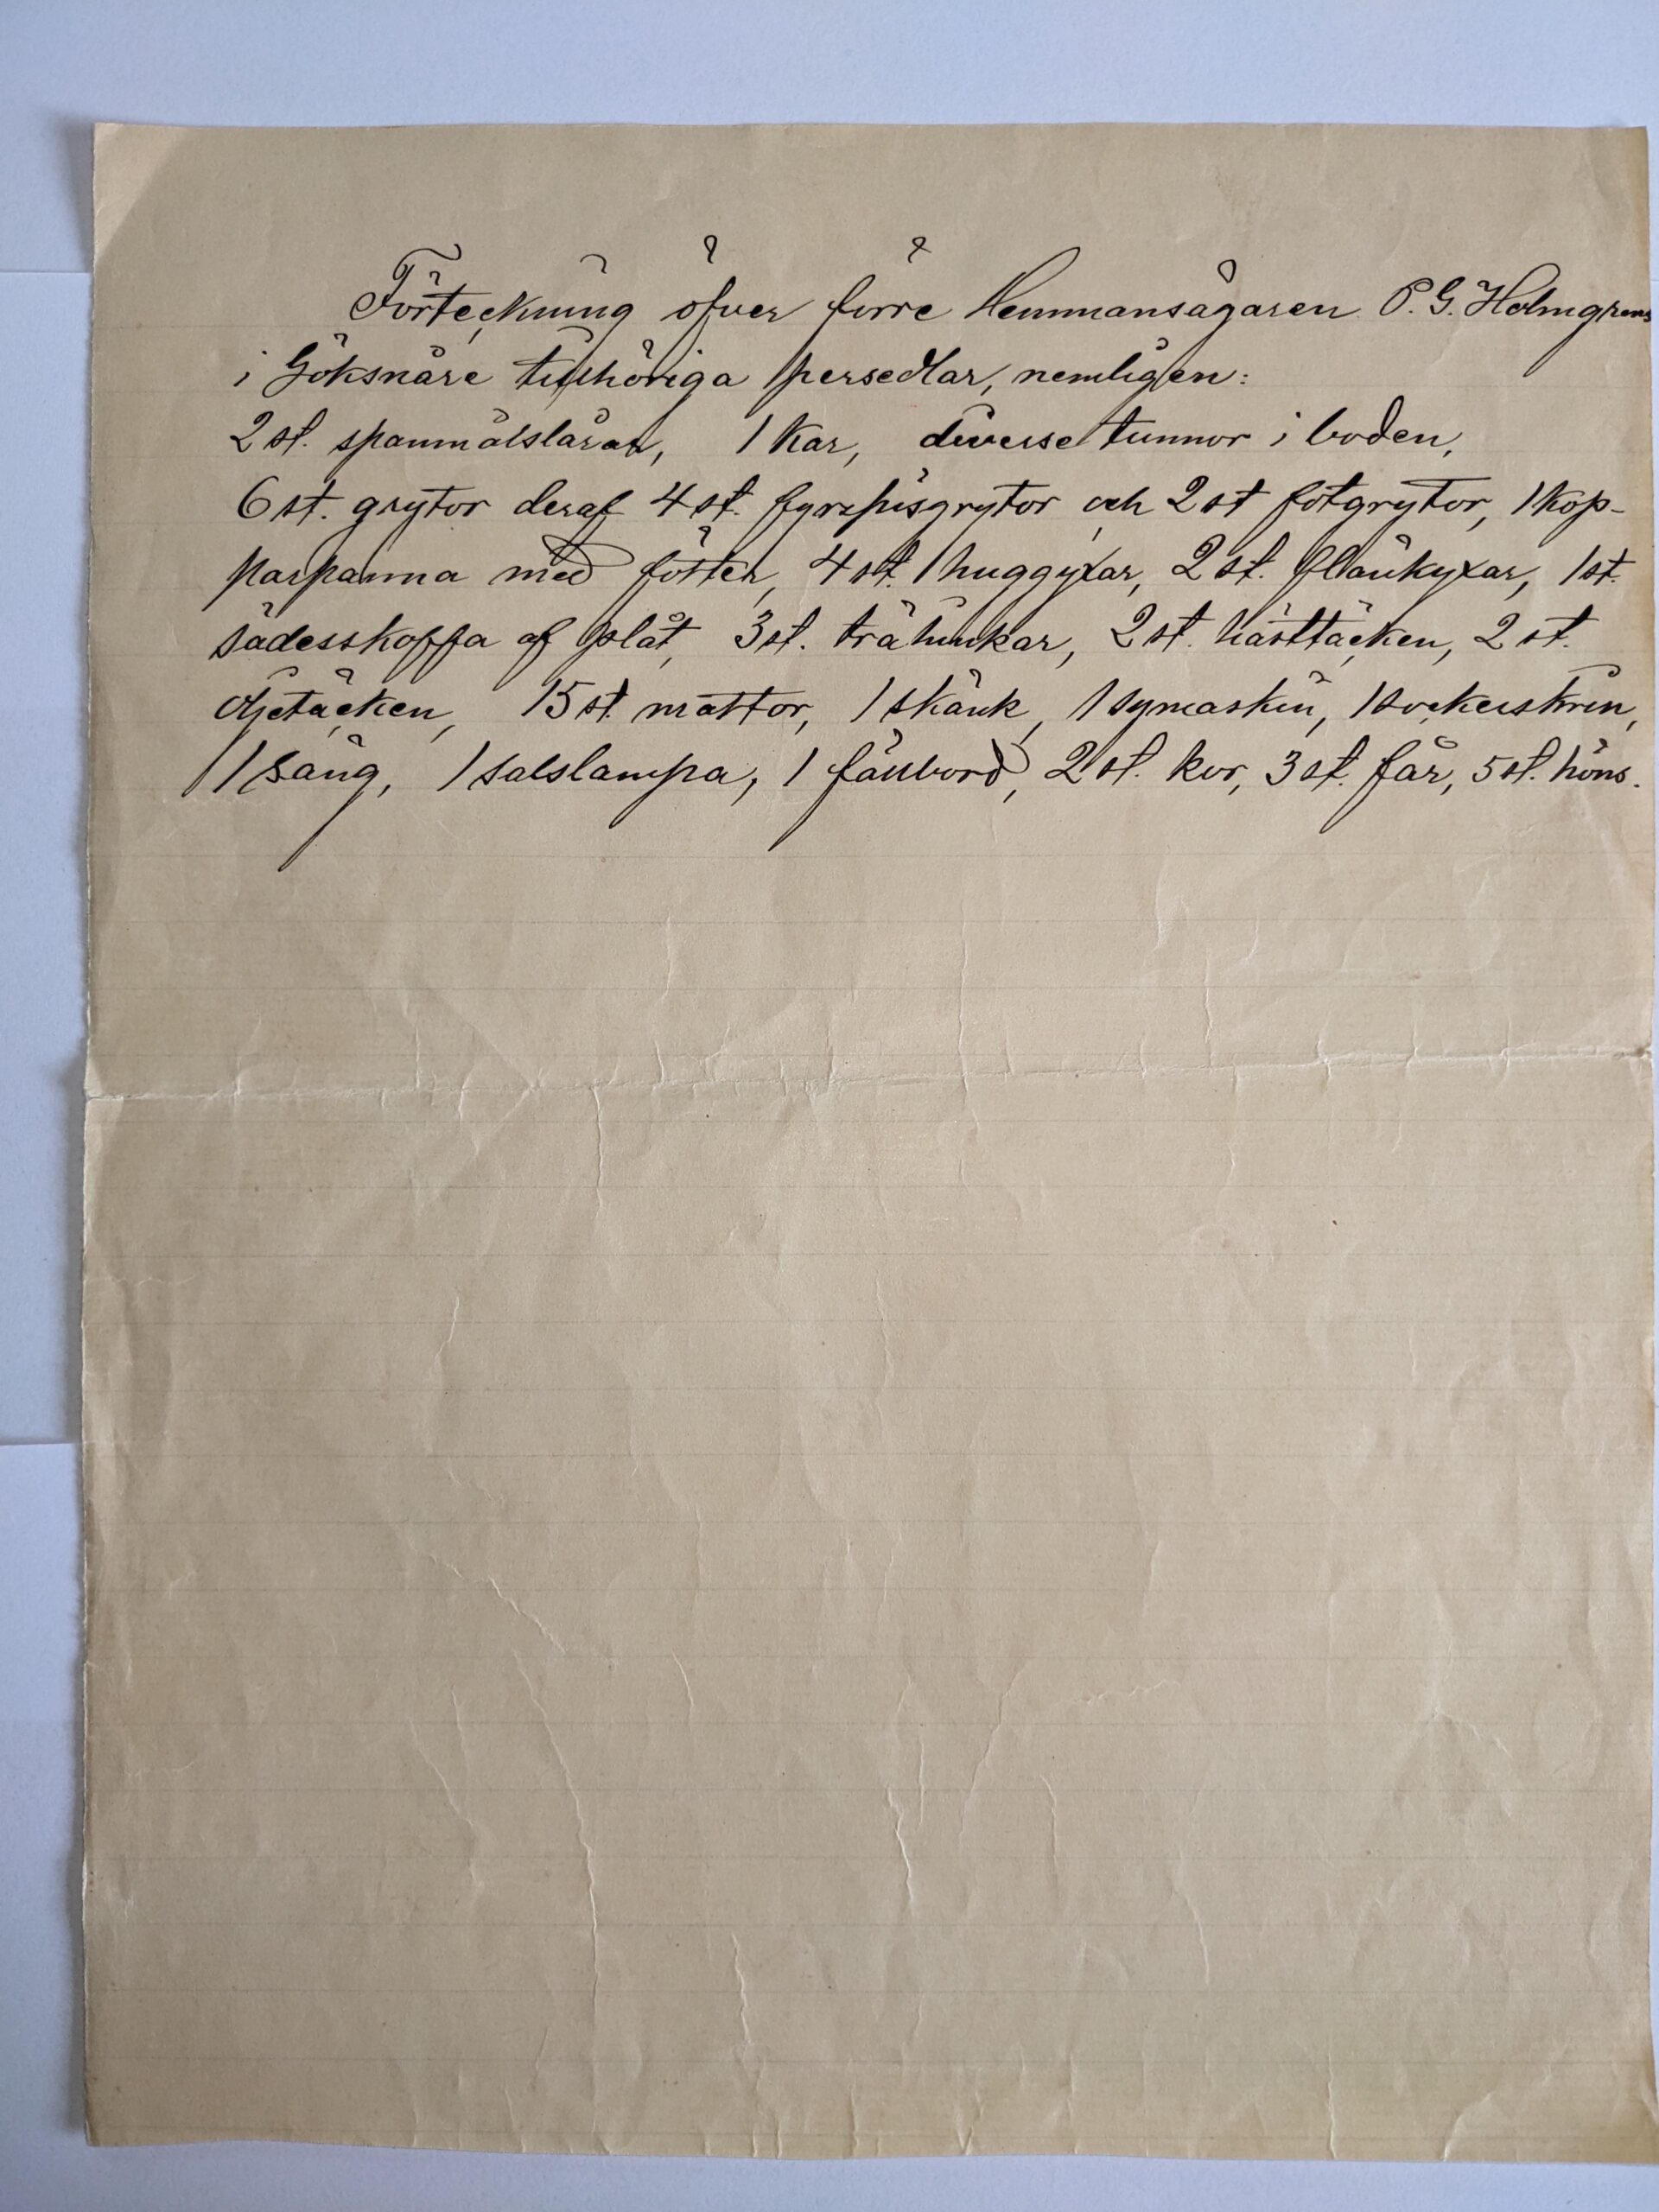 Förteckning öfver förre Hemmansägaren P. G. Holmgrens
i Göksnåre tillhöriga persedlar, nemligen:
2 st. spanmålslårar, 1 Kar, diverse tunnor i boden,
6 st. grytor deraf 4 st. fyrspisgrytor och 2 st fotgrytor, 1 kop-
parpanna med fötter, 4 st. huggyxar, 2 st. flänkyxar, 1 st.
sädesskoffa af plåt, 3 st. trähinkar, 2 st. hästtäcken, 2 st.
oljetäcken, 15 st. mattor, 1 skänk, 1 symaskin, 1 sockerskrin,
1 säng, 1 salslampa, 1 fällbord, 2 st. kor, 3 st. får, 5 st. höns.